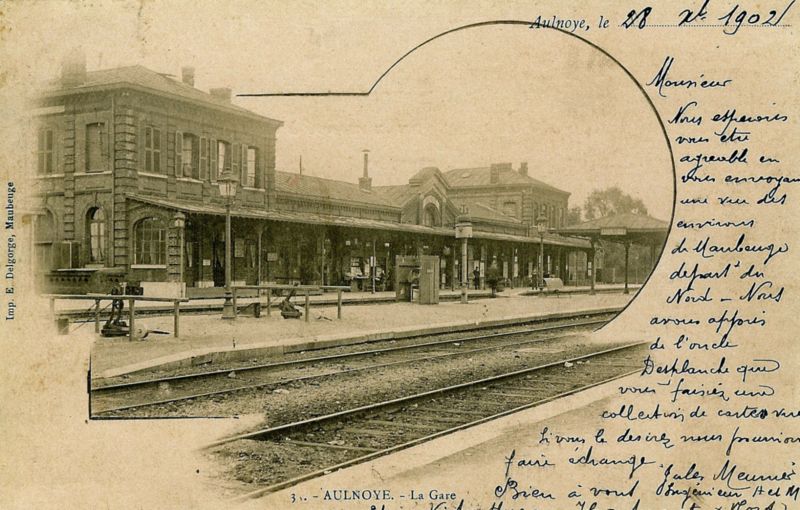 Aulnoye, le 28 Xbre 1902
Monsieur
Nous espérons
vous être
agréable en
vous envoyant
une vue des
environs
de Maubeuge
départ du
Nord - Nous
avons appris
de l'oncle
Desplanche que
vous faisiez une
collection de cartes vues
Si vous le désirez nous pourrions
faire échange
Jules Meunier
Bien à vous
Ingénieur A et M
3. - AULNOYE. - La Gare
Imp. E. Delgorge, Maubeuge